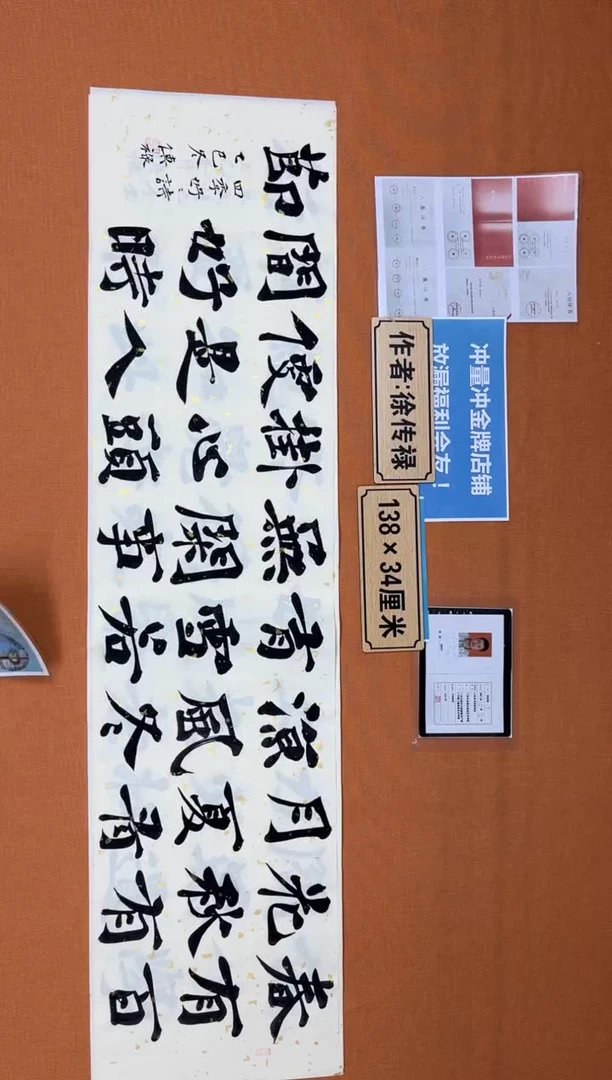 春有百
花秋有
月夏有
凉風冬
有雪若
無閑事
掛心頭
便是人
間好時
節
四季好詩
乙巳冬
傳祿
冲量冲金牌店铺
放漏福利会友！
作者:徐传禄
138×34厘米